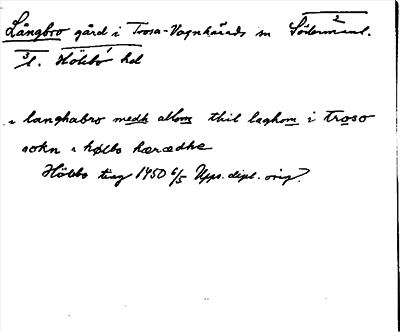 Långbro gård i Trosa-Vagnhärads sn Söderman l.
2
3/l. Hölebo hd
i langhabro medh allom thil laghom i troso
sokn i hølbo hæradhe
Hölebo ting 1450 6/5 Upps. dipl. orig.